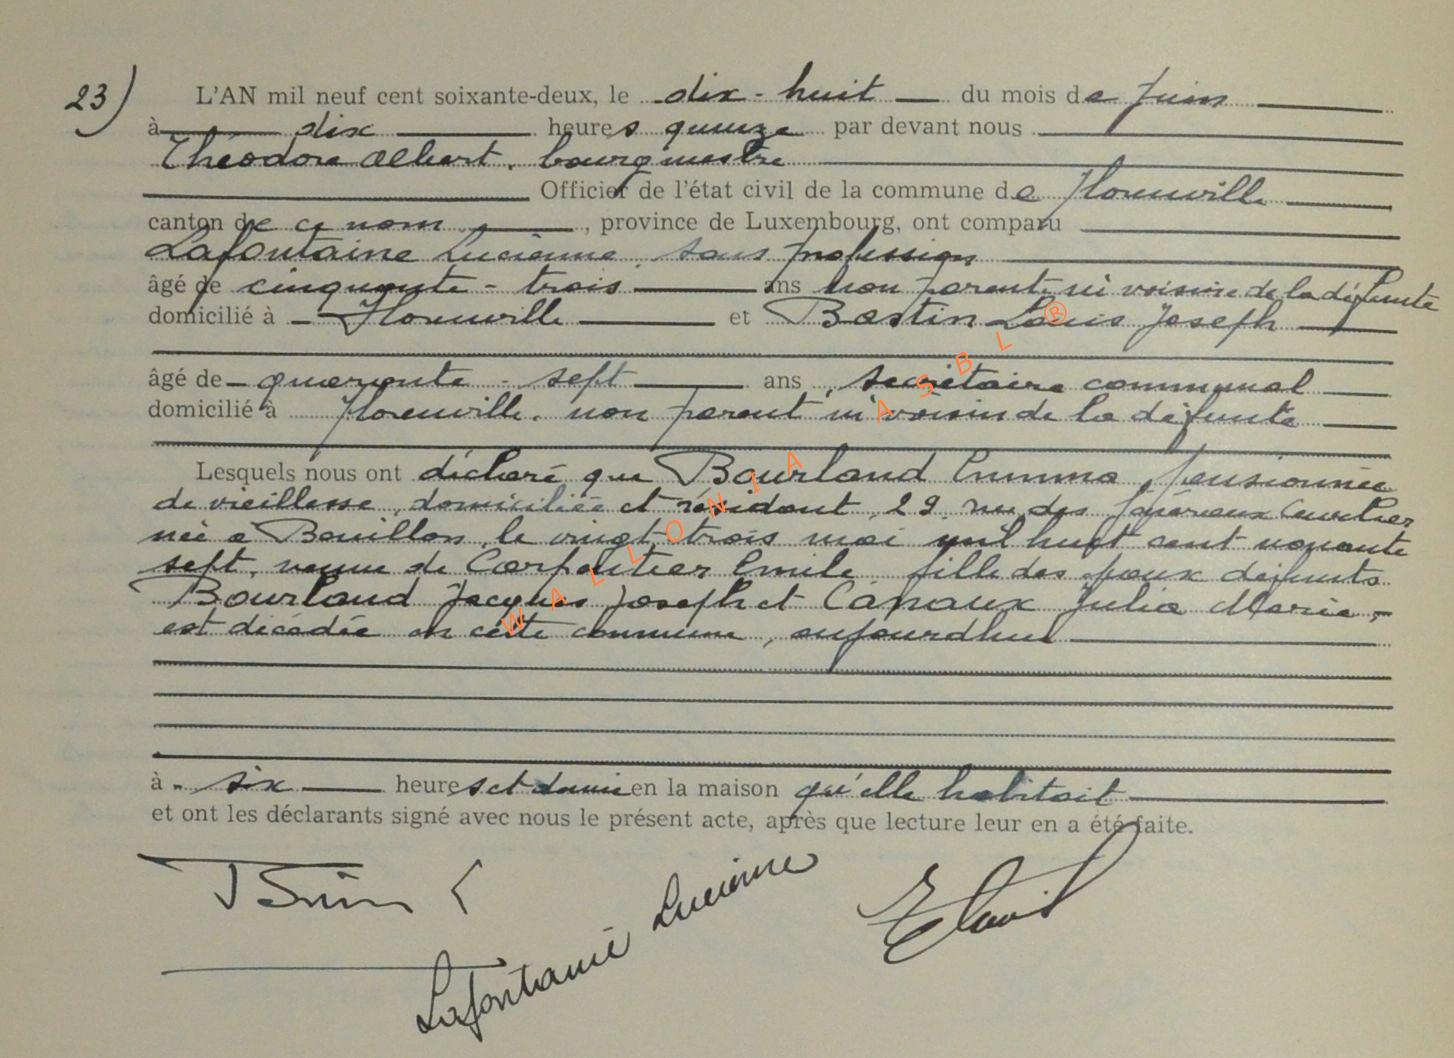 23)
L'AN mil neuf cent soixante-deux, le dix-huit du mois de juin
à dix heures quinze par devant nous
Théodore Albert, bourgmestre
Officier de l'état civil de la commune de Florenville
canton de ce nom, province de Luxembourg, ont comparu
Lafontaine Lucienne, sans profession
âgé de cinquante-trois ans non parente ni voisine de la défunte
domicilié à Florenville et Bastin Louis Joseph
âgé de quarante-sept ans, secrétaire communal
domicilié à Florenville, non parent ni voisin de la défunte
Lesquels nous ont déclaré que Bourland Emma, pensionnée
de vieillesse, domiciliée et résidant, 29, rue des Généraux Cuvelier
née à Bouillon, le vingt-trois mai mil huit cent nonante
sept, veuve de Carpentier Emile, fille des époux défunts
Bourland Jacques Joseph et Canaux Julie Marie,
est décédée en cette commune, aujourdhui
à six heures et demie en la maison qu'elle habitait
et ont les déclarants signé avec nous le présent acte, après que lecture leur en a été faite.
Lafontaine Lucienne
WALLONIA ASBL ®